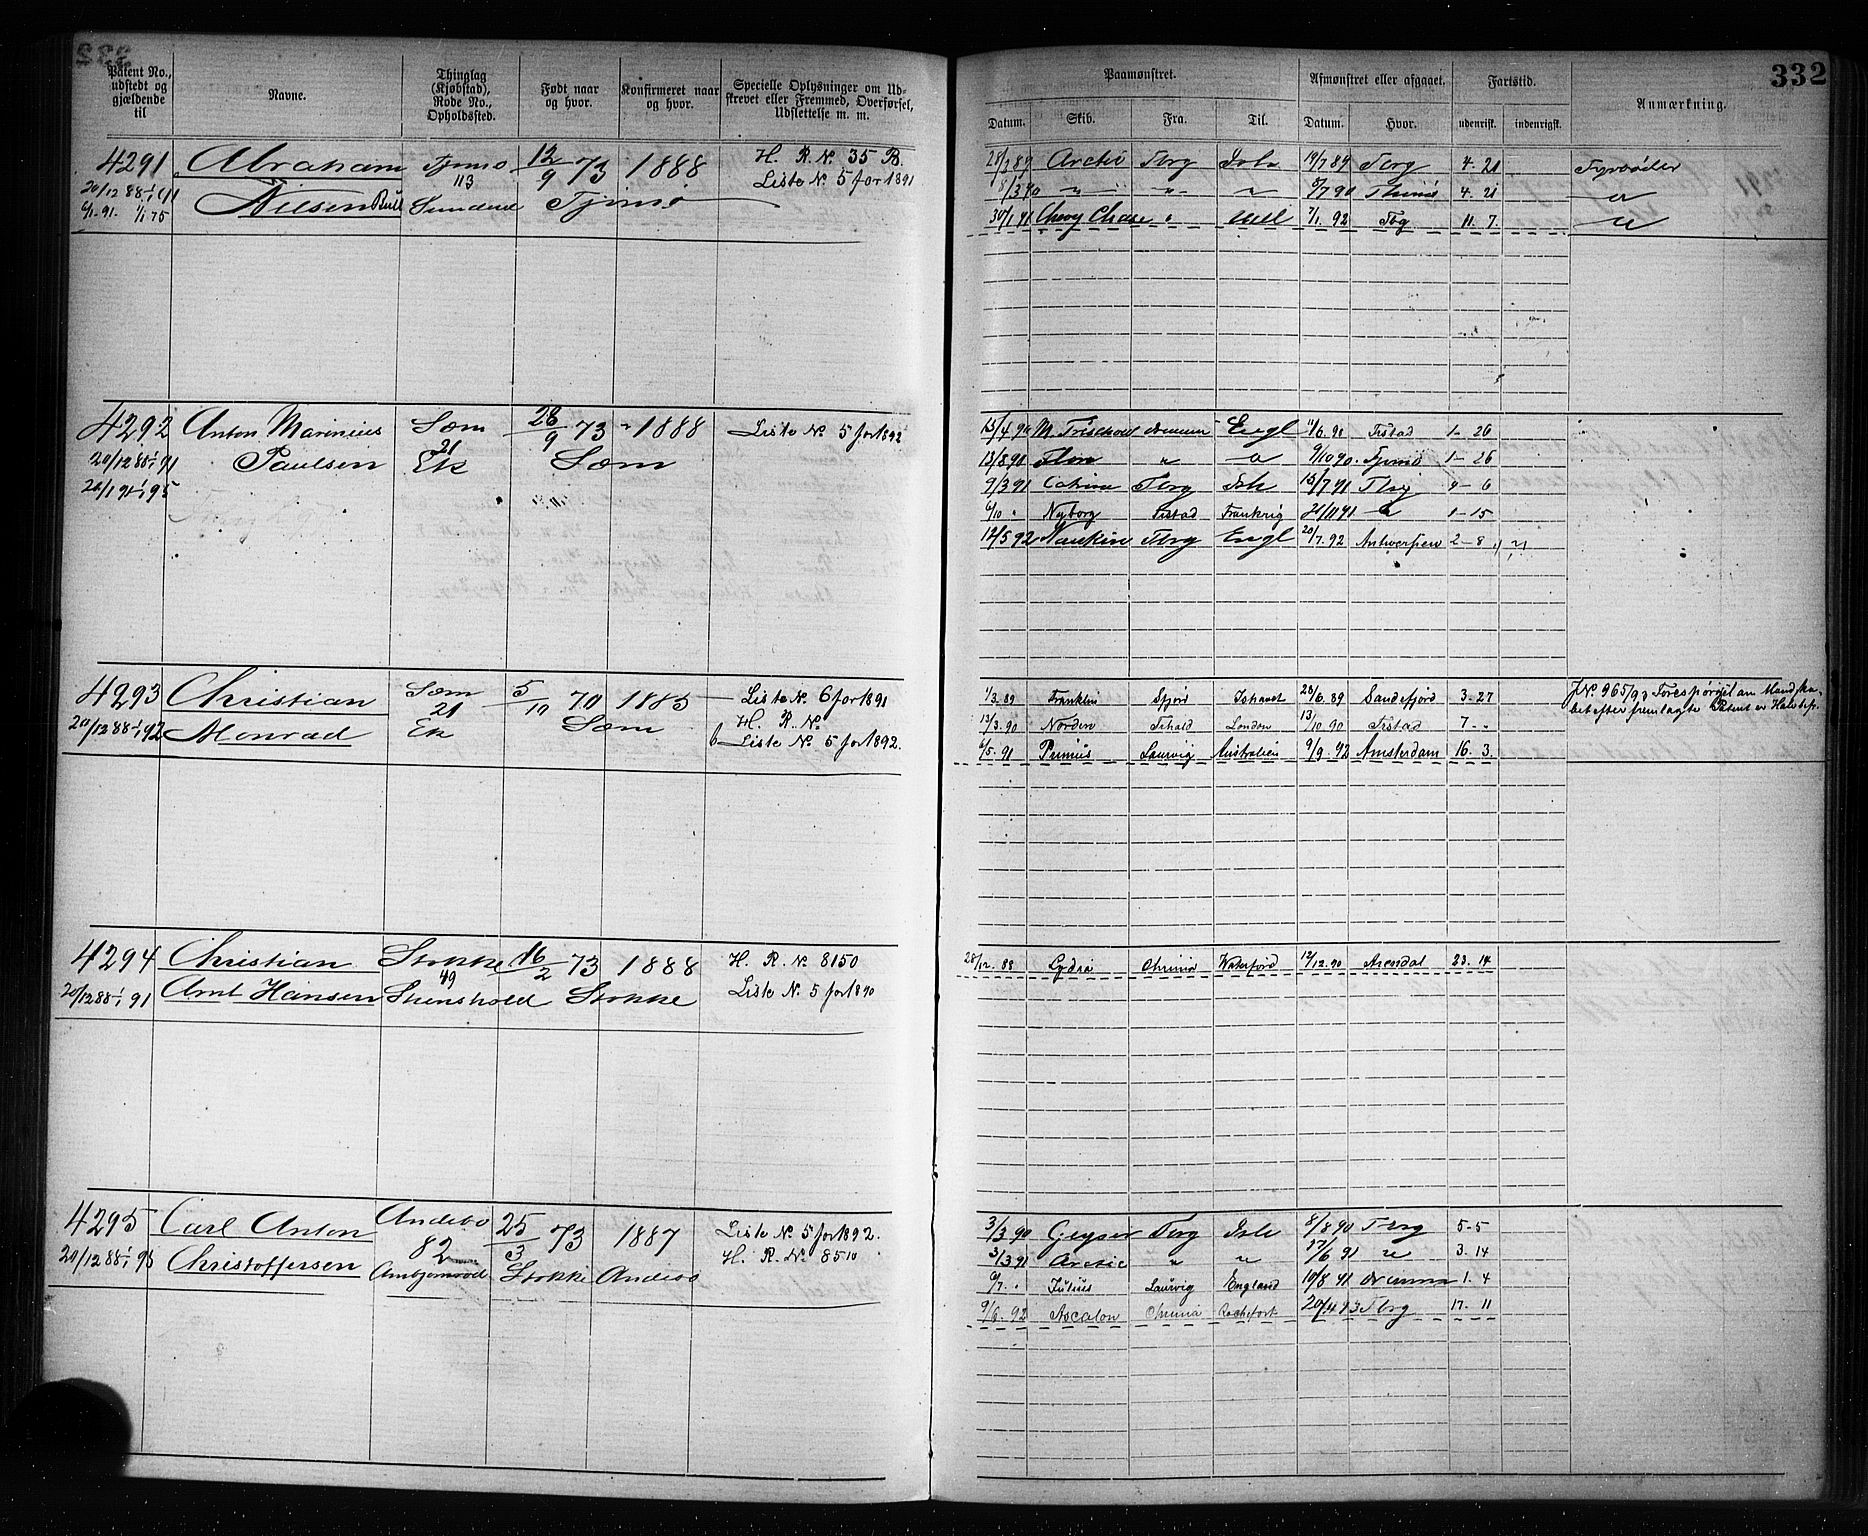 332
Patent No., udstedt og gjældende til
Navne.
Thinglag (Kjøbstad), Rode No., Opholdssted.
Født naar og hvor.
Konfirmeret naar og hvor.
Specielle Oplysninger om Udskrevet eller Fremmed, Overførsel, Udslettelse m. m.
Paamønstret.
Afmønstret eller afgaaet.
Fartstid.
Anmærkning.
Datum. Skib. Fra. Til. Datum. Hvor. udenrigst. indenrigst.
4291 Abraham Tjømø 12/9 73 1888 H. R. No 35 B.
20/12 88 - 1/1 91 113 Liste No. 5 for 1891
6/1 - 91. 1/1 75 Nilsen Bull Sunderød Tjømø
28/2 89 Arctic Tbrg Ish 19/7 89 Tbrg 4. 21 Fyrbøder
8/3 90 " " " 8/7 90 Tjømø 4. 21 "
30/1 91 Chevy Chase " 7/1. 92 Tbg 11. 7. "
4292 Anton Marinius Sem 28/9 73 1888 Liste No 5 for 1892
20/12 88 - 1/1 91 Paulsen 21 Ek Sem
20/1 91 - 1/1 95
15/4 90 M. Treschow Drammen Engl 11/6. 90 Frstad 1 - 26
13/8 90 Flora " " 9/10 90. Tjømø 1 - 26
9/3 91 Catrine Tbrg Ish 15/7 91 Tbrg 4 - 6
6/10 " Nyborg Frstad Frankrig 21/11 91 " 1 - 15
12/5 92 Nankin Tbrg Engl 20/7. 92 Antwerpen 2 - 8
4293 Christian Sem 5/10 70 1885 Liste No. 6 for 1891
21 H. R. No
20/12 88 - 1/1 92 Monrad Ek Sem Liste No. 5 for 1892.
1/3. 89 Franklin Sfjord Ishavet 28/6. 89 Sandefjord 3. 27 J No. 965/93 Forespørgsel om Mandska-
13/3. 90 Norden Frhald London 13/10 90 Frstad 7 - " bet efter fremlagte Patent er
6/5. 91 Primus Laurvig Australien 9/9. 92 Amsterdam 16. 3.
4294 Christian Stokke 16/2 73 1888 H. R. No 8150
49
20/12 88 - 1/1 91 Arnt Hansen Stenshold Stokke Liste No. 5 for 1890
28/12. 88 Lydia Chrania Waterford 12/12. 90 Arendal 23. 14
4295 Carl Anton Andebo 25/3 73 1887 Liste No. 5 for 1892.
20/12 88 - 1/1 95 82 H. R. No 8510
Christoffersen Stokke Andebo
3/3. 90 Geyser Tbrg Ish 8/8 90 Tbrg 5 - 5
3/3 91 Arctic " " 17/6 91 " 3. 14
9/7. " Julius Laurvig England 10/8 91 Drammen 1. 4
9/6. 92 Ascalon Chrania Rochefort 20/4 93 Tbrg 17. 11